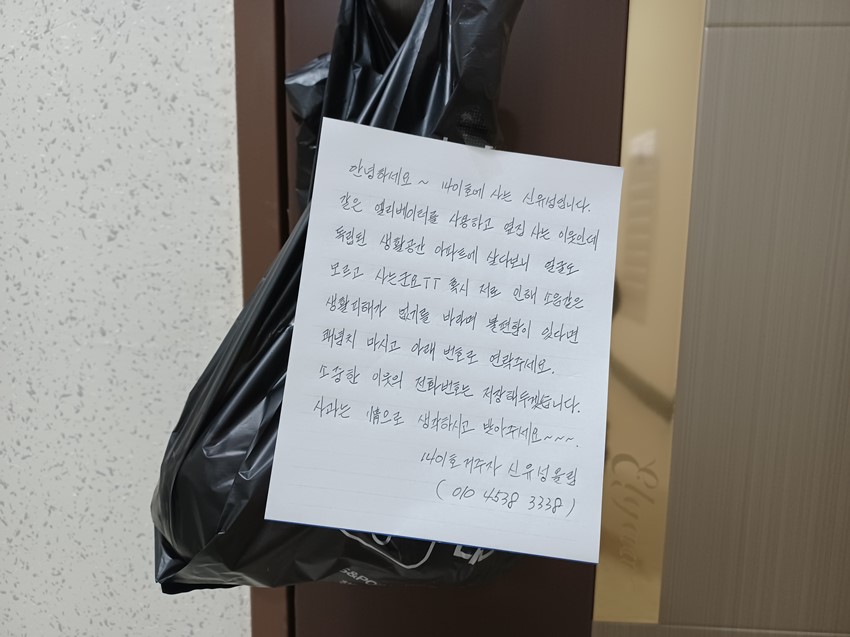 안녕하세요~ 1401호에 사는 신유성입니다.
같은 엘리베이터를 사용하고 옆집 사는 이웃인데
독립된 생활공간 아파트에 살다보니 얼굴도
모르고 사는군요TT 혹시 저로 인해 소음같은
생활피해가 없기를 바라며 불편함이 있다면
괘념치 마시고 아래 번호로 연락주세요.
소중한 이웃의 전화번호는 저장해두겠습니다.
사과는 情으로 생각하시고 받아주세요~~~.
1401호 거주자 신유성올림
(010 4538 3338)
S&PC